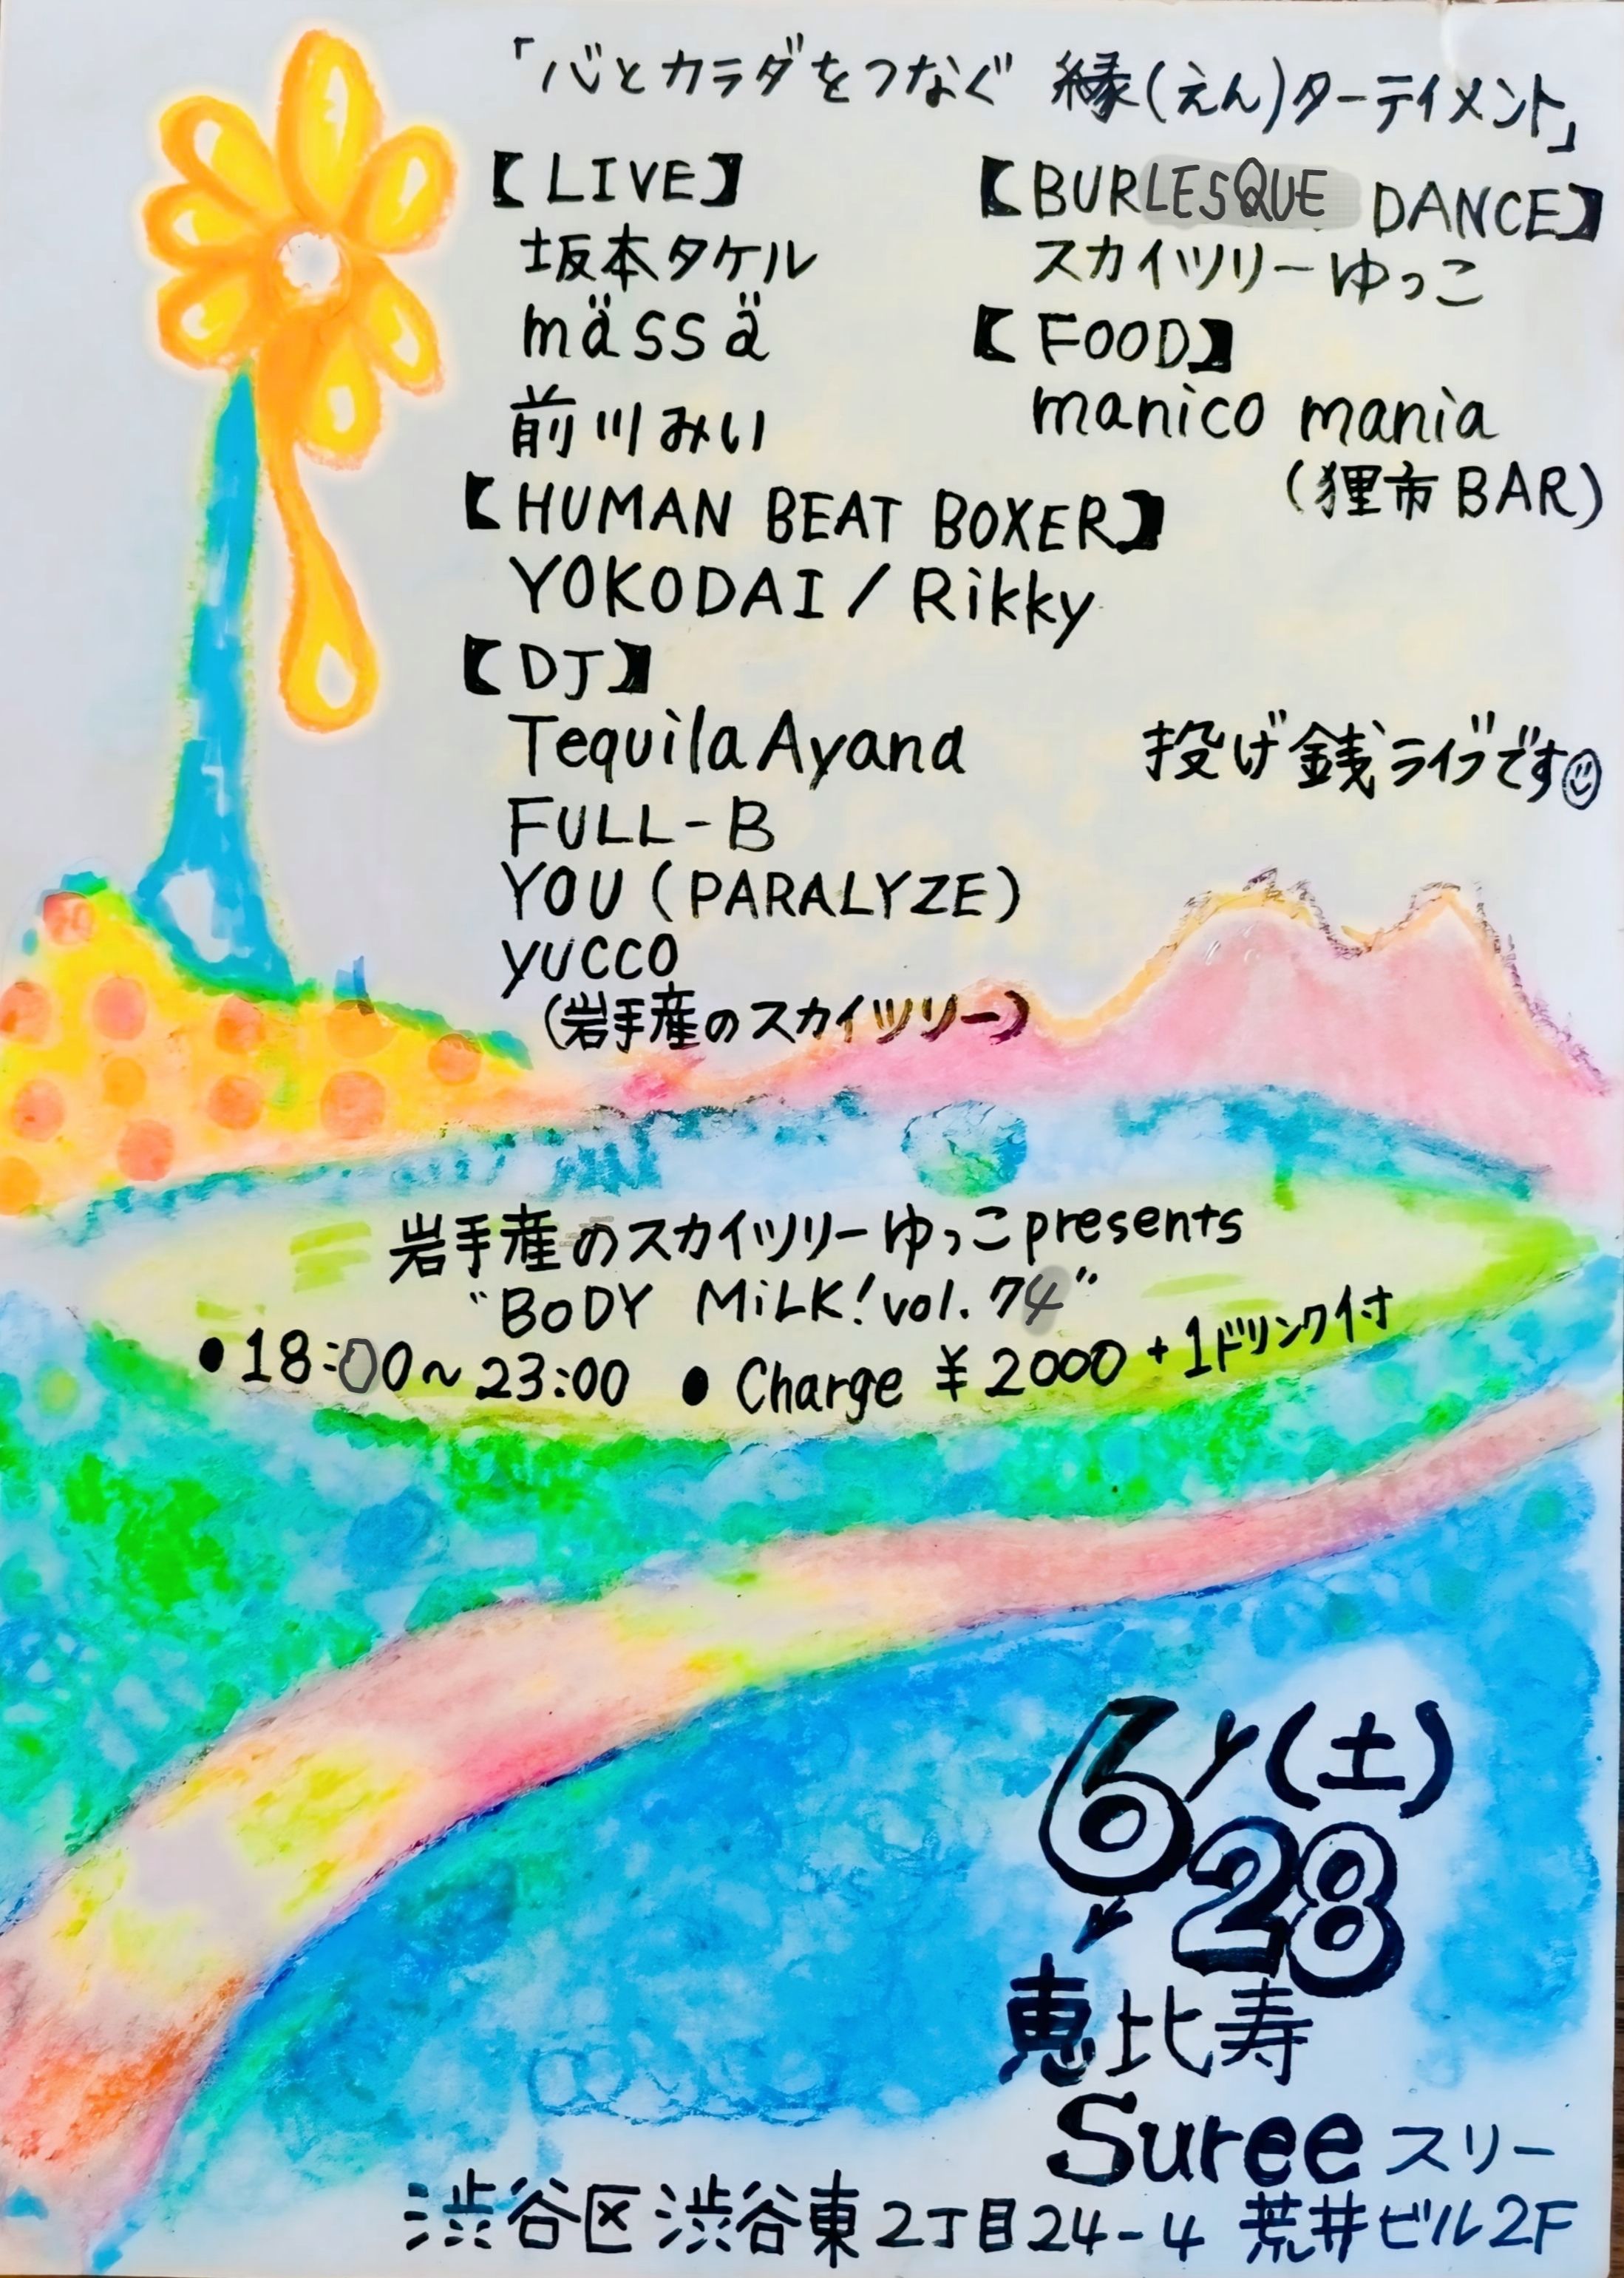 「心とカラダをつなぐ 縁(えん)ターテイメント」
【LIVE】
坂本タケル
mässä
前川みい
【BURLESQUE DANCE】
スカイツリーゆっこ
【FOOD】
manico mania
(狸市BAR)
【HUMAN BEAT BOXER】
YOKODAI / Rikky
【DJ】
Tequila Ayana
FULL-B
YOU (PARALYZE)
yucco
(岩手産のスカイツリー)
投げ銭ライブです
岩手産のスカイツリーゆっこpresents
"BODY MiLK! vol.74"
●18:00~23:00 ●Charge ¥2000+1ドリンク付
6/28(土)
恵比寿
Suree スリー
渋谷区渋谷東2丁目24-4 荒井ビル2F